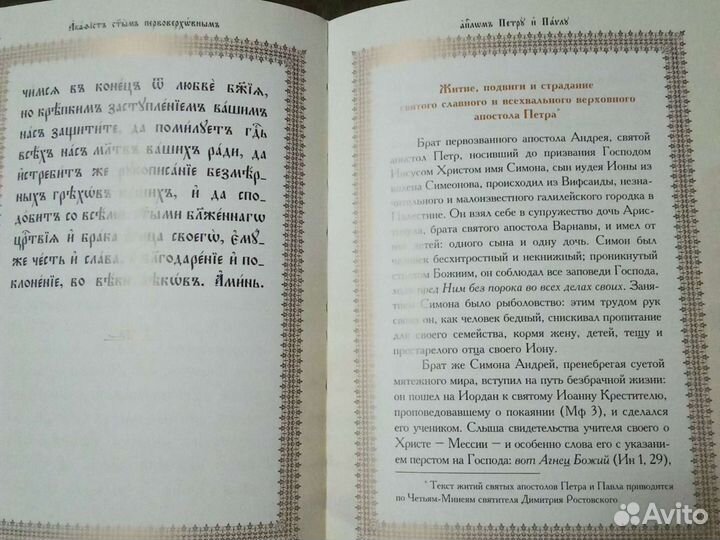 Акаѳістъ ст҃ы́мъ первоверхѡ́внымъ
чимсѧ въ коне́цъ ѿ любвѐ бж҃їѧ,
но крѣ́пкимъ застꙋпле́нїемъ ва́шимъ
на́съ защити́те, да поми́лꙋетъ гдⷭ҇ь
всѣ́хъ на́съ мл҃твъ ва́шихъ ра́ди, да
и҆стреби́тъ же рꙋкописа́нїе безмѣ́р-
ныхъ грѣхѡ́въ на́шихъ, и҆ да спо-
до́битъ со всѣ́ми ст҃ы́ми бл҃же́ннагѡ
црⷭ҇твїѧ и҆ бра́ка а҆́гнца своегѡ̀, є҆мꙋ́-
же че́сть и҆ сла́ва, и҆ благодаре́нїе и҆ по-
клоне́нїе, во вѣ́ки вѣкѡ́въ. А҆ми́нь.
а҆пⷭ҇лѡмъ Петрꙋ̀ и҆ Па́ѵлꙋ
Житие, подвиги и страдание
святого славного и всехвального верховного
апостола Петра*
Брат первозванного апостола Андрея, святой
апостол Петр, носивший до призвания Господом
Иисусом Христом имя Симона, сын иудея Ионы из
колена Симеонова, происходил из Вифсаиды, незна-
чительного и малоизвестного галилейского городка в
Палестине. Он взял себе в супружество дочь Арис-
товула, брата святого апостола Варнавы, и имел от
нее детей: одного сына и одну дочь. Симон был
человек бесхитростный и некнижный; проникнутый
страхом Божиим, он соблюдал все заповеди Господа,
ходя пред Ним без порока во всех делах своих. Заня-
тием Симона было рыболовство; этим трудом рук
своих он, как человек бедный, снискивал пропитание
для своего семейства, кормя жену, детей, тещу и
престарелого отца своего Иону.
Брат же Симона Андрей, пренебрегая суетой
мятежного мира, вступил на путь безбрачной жизни:
он пошел на Иордан к святому Иоанну Крестителю,
проповедовавшему о покаянии (Мф 3), и сделался
его учеником. Слыша свидетельства учителя своего о
Христе – Мессии – и особенно слова его с указани-
ем перстом на Господа: вот Агнец Божий (Ин 1, 29),
* Текст житий святых апостолов Петра и Павла приводится
по Четьям-Минеям святителя Димитрия Ростовского
Avito